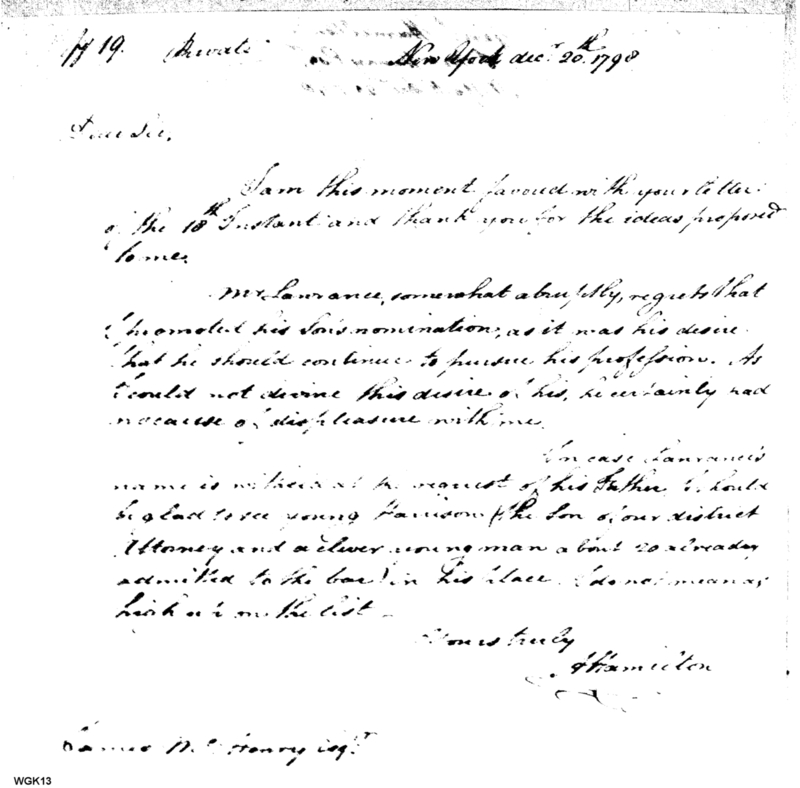 19. Private New York decr. 20th. 1798
Dear Sir,
I am this moment favoud with your letter
of the 18th Instant and thank you for the ideas proposed
to me.
Mr. Lawrance, somewhat abruptly, regrets that
I promoted his Son's nomination, as it was his desire
that he should continue to pursue his profession. As
I could not divine this desire of his, he certainly had
no cause of displeasure with me.
In case Lawrance's
name is witheld at the request of his Father I should
be glad to see young Harrison (the Son of our district
Attorney and a clever young man about 20 already
admitted to the bar) in his place. I do not mean as
high up on the list
Yours truly
A Hamilton
James Mc Henry Esqr.
WGK13